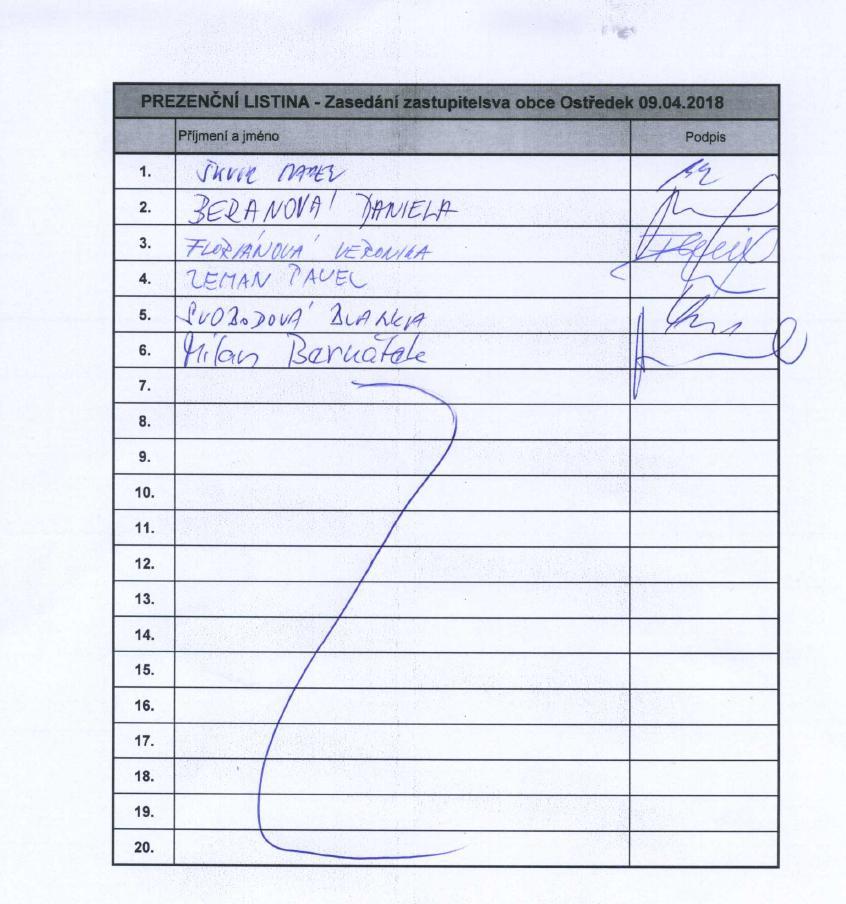 PREZENČNÍ LISTINA - Zasedání zastupitelsva obce Ostředek 09.04.2018
Příjmení a jméno Podpis
1.
2. BERANOVÁ DANIELA
3. FLORIÁNOVÁ VERONIKA
4. ZEMAN PAVEL
5. SVOBODOVÁ BLANKA
6. Milan Bernátek
7.
8.
9.
10.
11.
12.
13.
14.
15.
16.
17.
18.
19.
20.